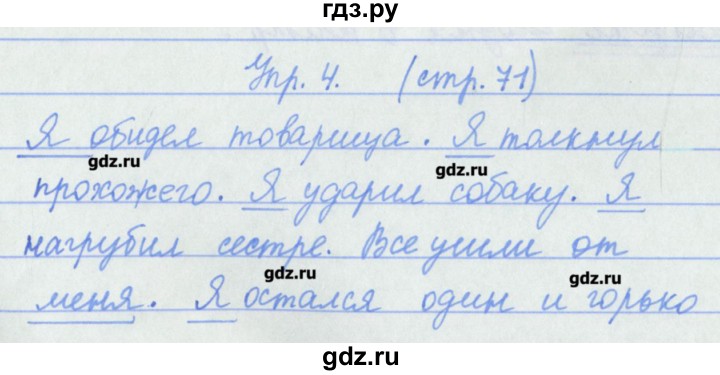 гдз.ру
Упр. 4. (стр. 71)
Я обидел товарища. Я толкнул
gdz.ru gdz.ru
прохожего. Я ударил собаку. Я
нагрубил сестре. Все ушли от
gdz.ru gdz.ru
меня. Я остался один и горько
gdz.ru